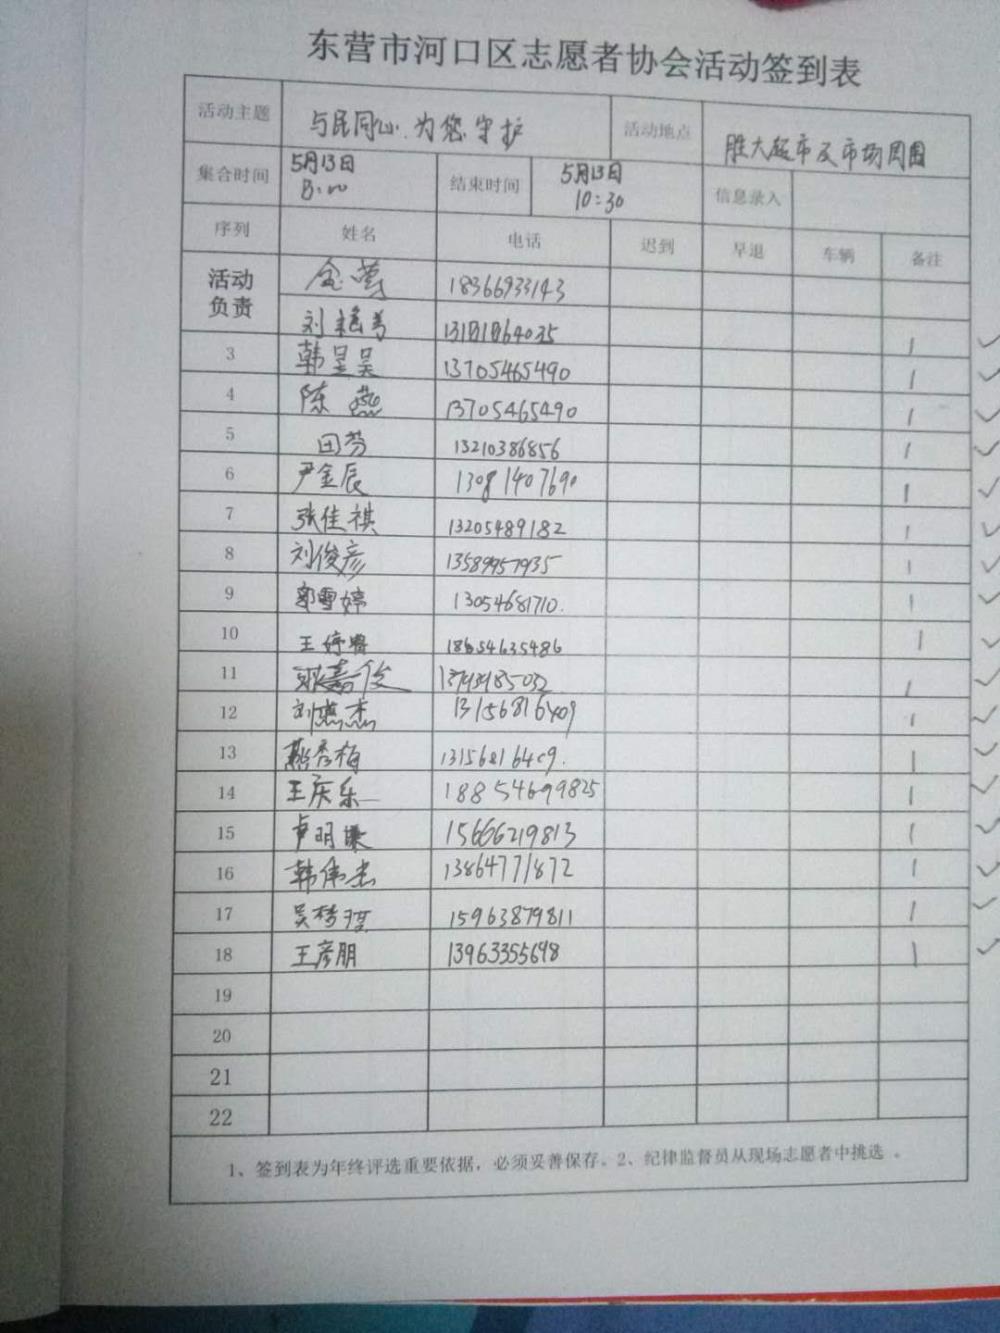 东营市河口区志愿者协会活动签到表
活动主题 与民同心 为您守护 活动地点 胜大超市及市场周围
集合时间 5月13日 8:00 结束时间 5月13日 10:30 信息录入
序列 姓名 电话 迟到 早退 车辆 备注
活动负责 金莺 18366933143
刘艳芳 1
3 韩昱昊 13705465490 1
4 陈燕 13705465490 1
5 田芬 13210386856 1
6 尹金辰 13081407690 1
7 张佳祺 13205489182 1
8 刘俊彦 13589957935 1
9 郭雪婷 13054681710. 1
10 王婷 18654635486 1
11 嘉俊 1
12 刘燕杰 13156816409 1
13 秀梅 13156816409. 1
14 王庆乐 18854699825 1
15 卢明 15666219813 1
16 韩伟杰 13864771872 1
17 吴梦 15963879811 1
18 王彦朋 13963355698 1
19
20
21
22
1、签到表为年终评选重要依据，必须妥善保存。2、纪律监督员从现场志愿者中挑选 。